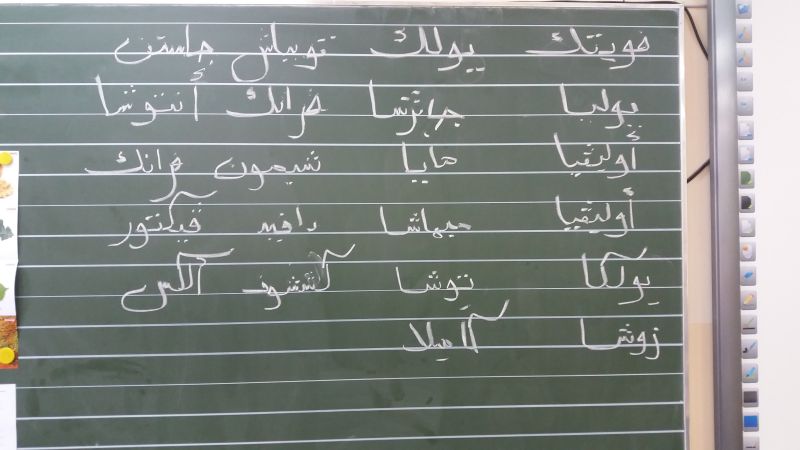 فويتك يولك توبياش جاستن
يوليا جائزشا فرانك أنتوشا
أوليڤيا مايا شيمون فرانك
أوليڤيا ميهاشا دافيد ڤيكتور
يولكا نتوشا كشتوف آلكس
زوشا كاميلا